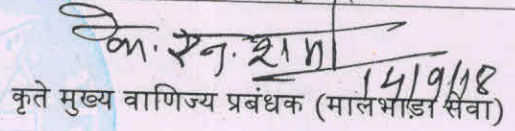 के. एन. शर्मा
14/9/18
कृते मुख्य वाणिज्य प्रबंधक (मालभाड़ा सेवा)